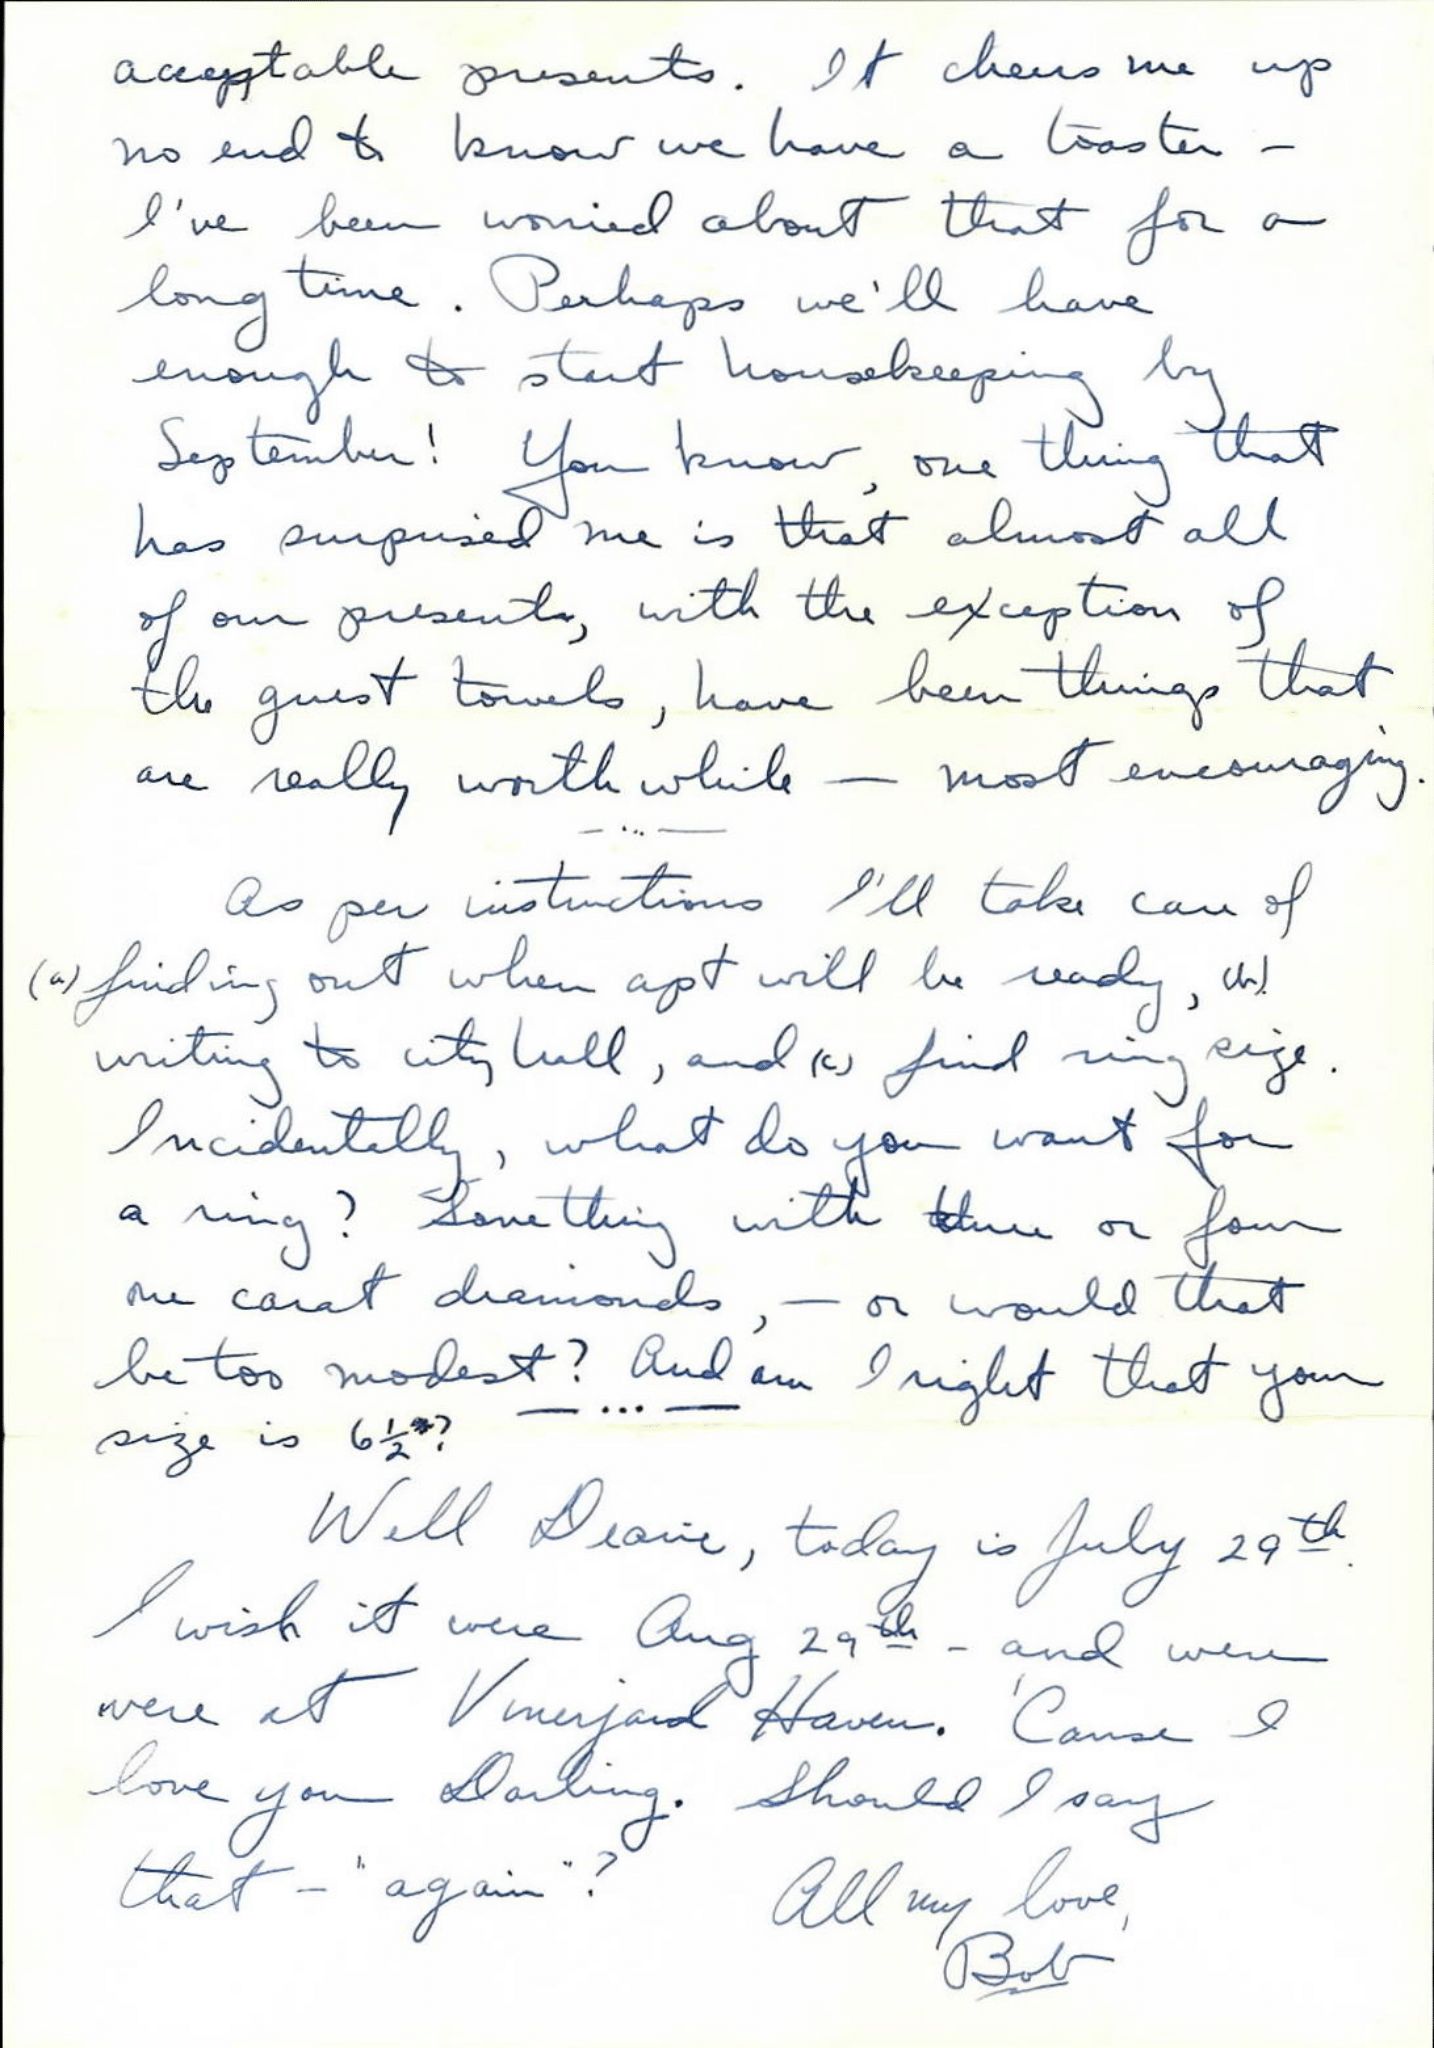 acceptable presents. It cheers me up
no end to know we have a toaster –
I've been worried about that for a
long time. Perhaps we'll have
enough to start housekeeping by
September! You know, one thing that
has surprised me is that almost all
of our presents, with the exception of
the guest towels, have been things that
are really worth while — most encouraging.
— ... —
As per instructions I'll take care of
(a) finding out when apt will be ready, (b)
writing to city hall, and (c) find ring size.
Incidentally, what do you want for
a ring? Something with three or four
one carat diamonds, — or would that
be too modest? And am I right that your
size is 6½?
— ... —
Well Dearie, today is July 29th.
I wish it were Aug 29th – and were
were at Vineyard Haven. 'Cause I
love you Darling. Should I say
that – "again"?
All my love,
Bob